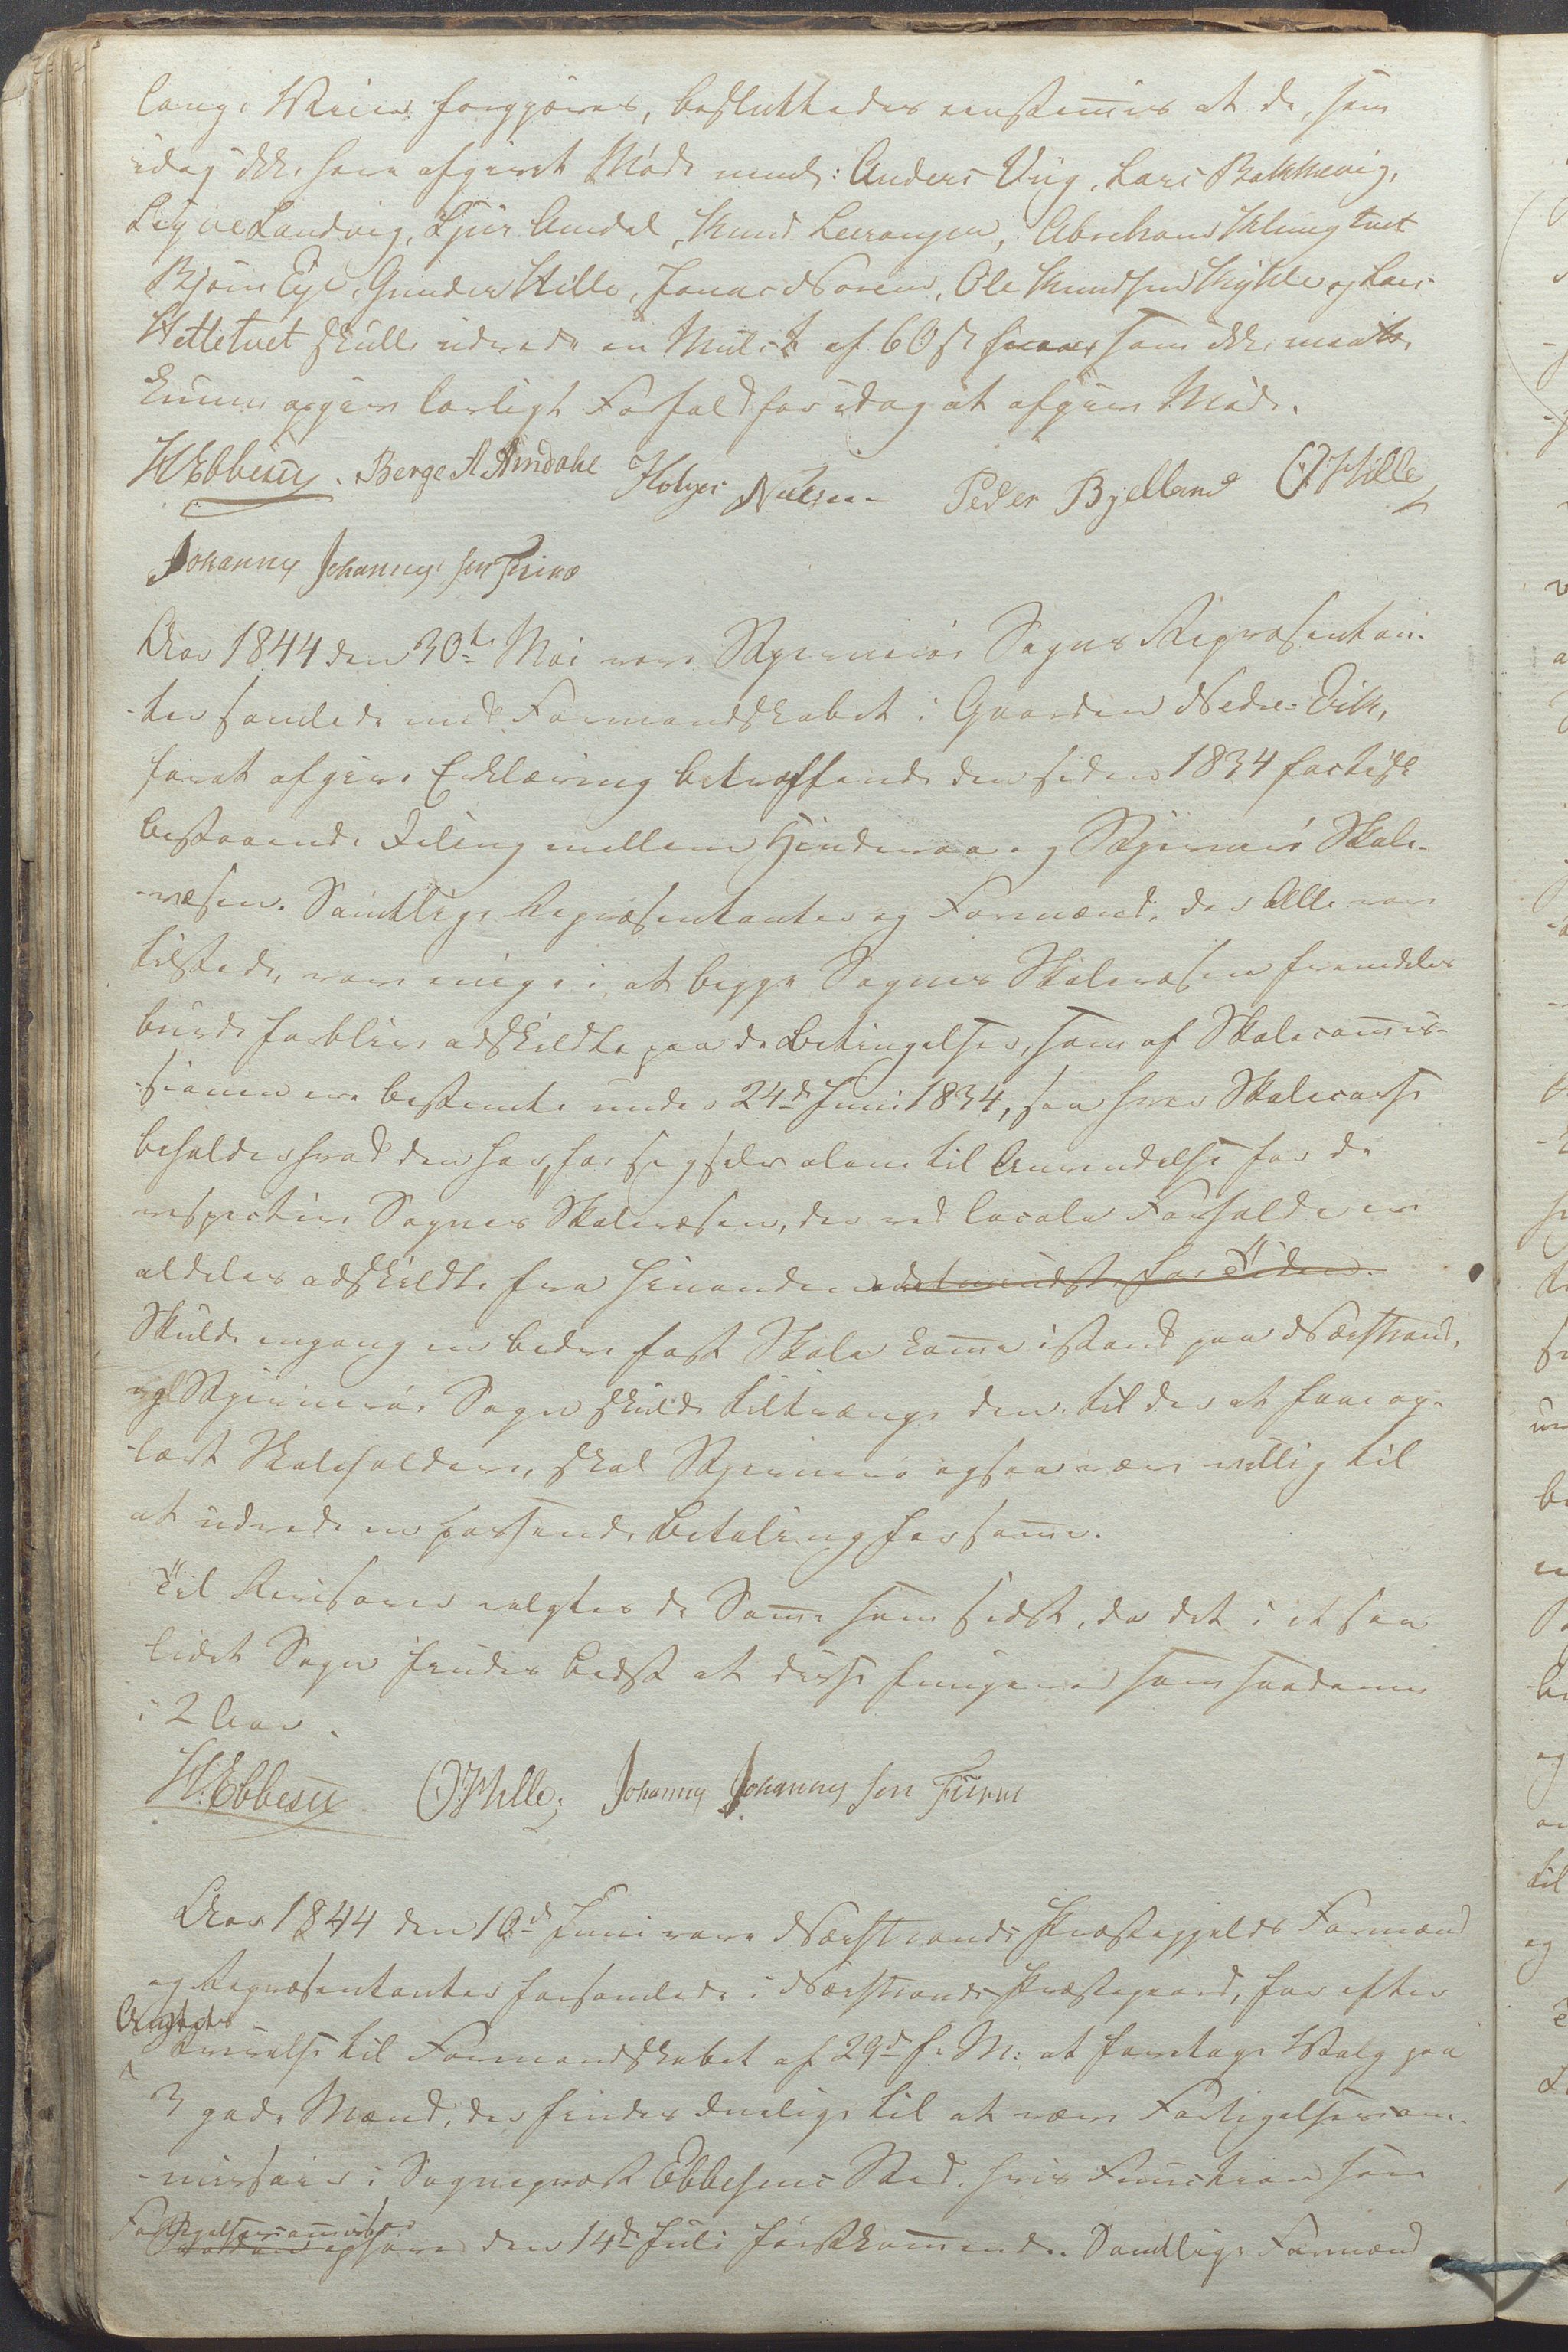 lange Veien forgjæves, besluttedes eenstemmig at de, som
idag ikke have afgivet Møde nemlig: Anders Viig, Lars Bakkevig,
Landvig, Sjur Amdal, Knud Leerangen, Abraham Klungtvet
Bjørn Eye, Gunder Hille, Jonas Noreim, Ole Knudsen og Lars
Hettetvet skulle udrede en Mulct af 60 s som ikke maatte
kunne opgive lovligt Forfald for idag at afgive Møde.
H Ebbesen. Berge A Amdahl Holger Nielsen Peder Bjelland O Hille
Johannes Johannes sen
Aar 1844 den 30te Mai vare Sogns Repræsentan-
ter samlede med Formandskabet i Gaarden Nedre-Vik,
forat afgive Erklæring betræffende den siden 1834 factisk
bestaaende Deling mellem Hinderaa og Skole-
væsen. Samtlige Repræsentanter og Formænd, der Alle vare
tilstede, vare enige i, at begge Sognes Skolevæsen fremdeles
burde forblive adskildte paa de Betingelser, som af Skolecommis-
sionen ere bestemte under 24de Juni 1834, saa hver Skolecasse
beholder hvad den har, for sig selv alene til Anvendelse for de
respective Sognes Skolevæsen, der ved locale Forholde ere
aldeles adskildte fra hinanden idetmindste for Tiden.
Skulde engang en bedre fast Skole komme istand paa Nærstrand,
og Sogn skulde tiltrænge den til der at faae op-
lært Skoleholdere, skal ogsaa være villig til
at udrede en passende Betaling for samme.
Til Revisorer valgtes de Samme som sidst, da det i et saa
lidet Sogn findes bedst at disse fungerer som saadanne
i 2 Aar.
H. Ebbesen O Hille; Johannes Johannes sen
Aar 1844 den 10de Juni vare Nærstrands Præstegjelds Formænd
og Repræsentanter forsamlede i Nærstrands Præstegaard, for efter
Amtets
Skrivelse til Formandskabet af 29de f. M. at foretage Valg paa
3 gode Mænd, der findes duelige til at være Forligelsescom-
missair i Sogneprest Ebbesens Sted, hvis Function som
Forligelsescommissair
ophører den 14de Juli førstkommende. Samtlige Formænd